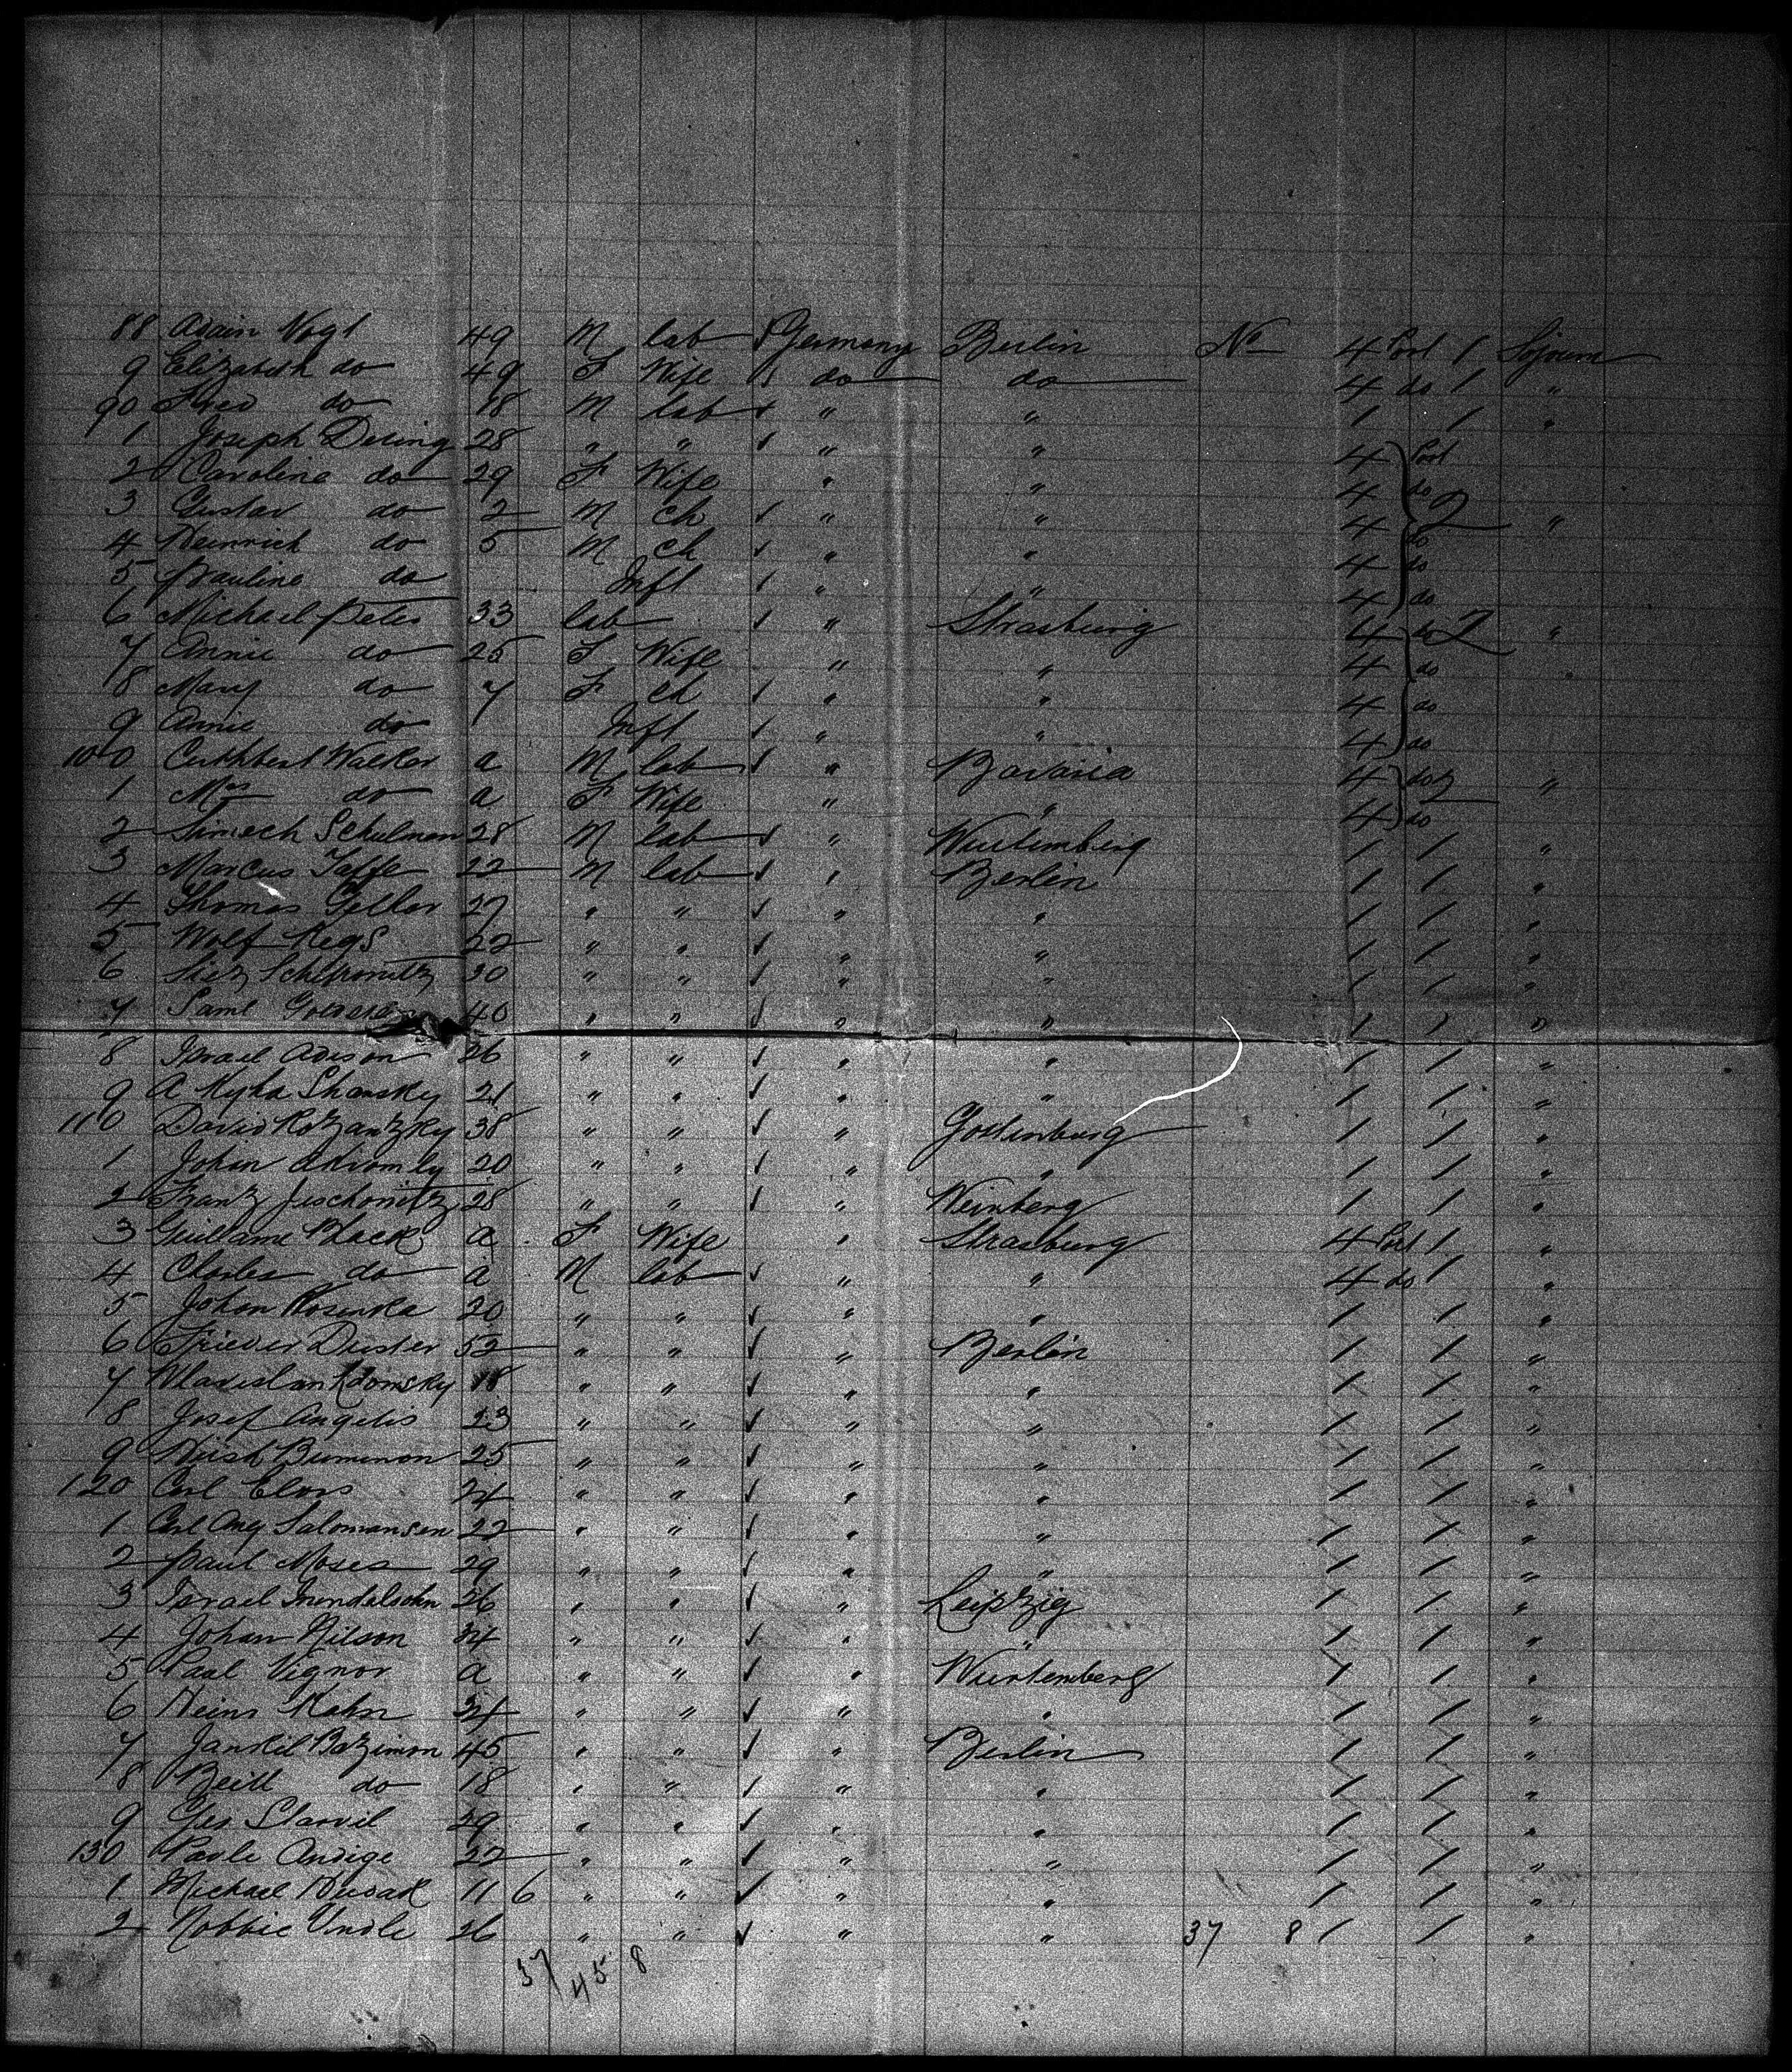 88 Adam Vogt 49 M lab ✓ Germany Berlin No 4 Port 1 Sojourn
9 Elizabeth do 49 F Wife ✓ do do 4 do 1 "
90 Fred do 18 M lab ✓ " " 1 1 "
1 Joseph Dering 28 " " ✓ " " 4 Port
2 Caroline do 29 F Wife " " 4 do
3 Gustav do 2 M ch ✓ " " 4 do 2 "
4 Heinrich do 5 M ch ✓ " " 4 do
5 Pauline do Inft ✓ " " 4 do
6 Michael Peter 33 lab ✓ " Strasburg 4 do 2 "
7 Annie do 25 F Wife " " 4 do
8 Mary do 7 F ch ✓ " " 4 do
9 Annie do Inft ✓ " " 4 do
100 Cuthbert Walker a M lab ✓ " Bavaria 4 do 2 "
1 Mrs do a F Wife " " 4 do
2 Schulman 28 M lab ✓ " Wurtemberg 1 1 "
3 Marcus Jaffe 22 M lab ✓ " Berlin 1 1 "
4 Thomas Geller 27 " " ✓ " " 1 1 "
5 Wolf Regs 22 " " ✓ " " 1 1 "
6 30 " " ✓ " " 1 1 "
7 Saml 40 " " ✓ " " 1 1 "
8 Israel Adison 26 " " ✓ " " 1 1 "
9 A Sharsky 21 " " ✓ " " 1 1 "
110 David Rozantzky 38 " " ✓ " Gottenburg 1 1 "
1 Johan 20 " " ✓ " " 1 1 "
2 Frantz Jeschonitz 28 " " ✓ " Weinberg 1 1 "
3 Guillame Black a F Wife " Strasburg 4 Port 1 "
4 Charles do a M lab ✓ " " 4 do 1 "
5 Johan Rosenka 20 " " ✓ " " 1 1 "
6 Frieder Duster 52 " " ✓ " Berlin 1 1 "
7 18 " " ✓ " " 1 1 "
8 Josef Angelis 23 " " ✓ " " 1 1 "
9 Hirsh Bumenon 25 " " ✓ " " 1 1 "
120 Carl Elvos 24 " " ✓ " " 1 1 "
1 Carl Aug Salomansen 22 " " ✓ " " 1 1 "
2 Paul Moses 29 " " ✓ " " 1 1 "
3 Israel 26 " " ✓ " Leipzig 1 1 "
4 Johan Nilson 34 " " ✓ " " 1 1 "
5 Paal Vignor a " " ✓ " Wurtemberg 1 1 "
6 Heins Kahn 34 " " ✓ " " 1 1 "
7 Jankil Bazimon 45 " " ✓ " Berlin 1 1 "
8 Beill do 18 " " ✓ " " 1 1 "
9 Ges Starvil 29 " " ✓ " " 1 1 "
130 Pavle Andige 22 " " ✓ " " 1 1 "
1 Michael Husak 11 6 " " ✓ " " 1 1 "
2 Robbie Undle 26 " " ✓ " " 37 8 1 1 "
37 45 8